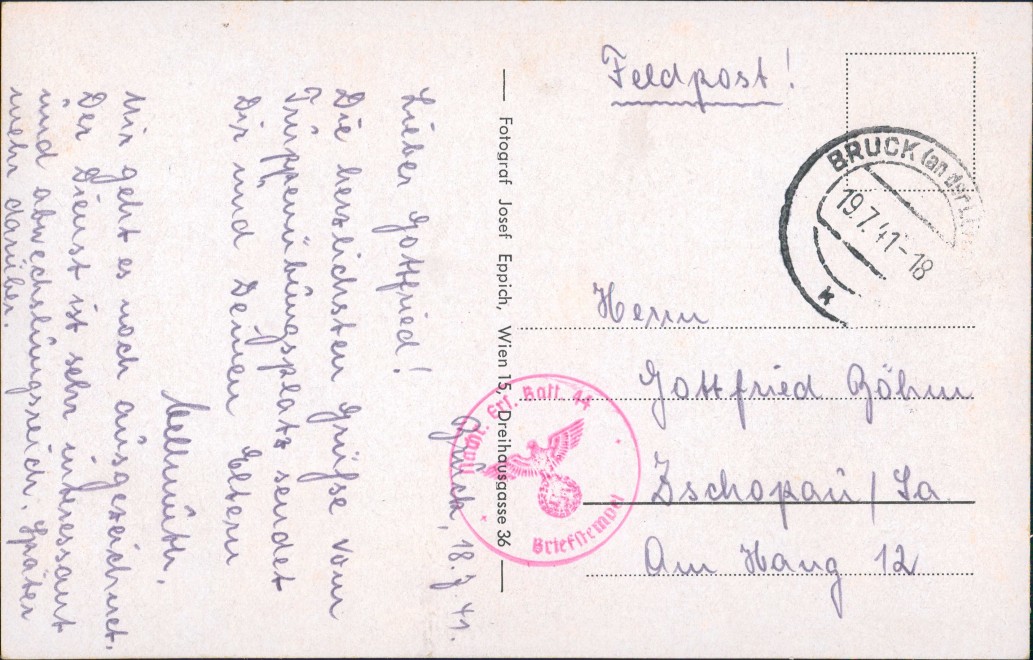 Feldpost!
BRUCK (an der L
19.7.41-18
k
Herrn
Gottfried Böhm
Zschopau / Sa.
Am Hang 12
Fotograf Josef Eppich, Wien 15, Dreihausgasse 36
Ers. Batl. 44
Briefstempel
Bruck, 18.7.41.
Lieber Gottfried!
Die herzlichsten Grüße vom
Truppenübungsplatz sendet
Dir und Deinen Eltern
Hellmuth.
Mir geht es noch ausgezeichnet.
Der Dienst ist sehr interessant
und abwechslungsreich. Später
mehr darüber.